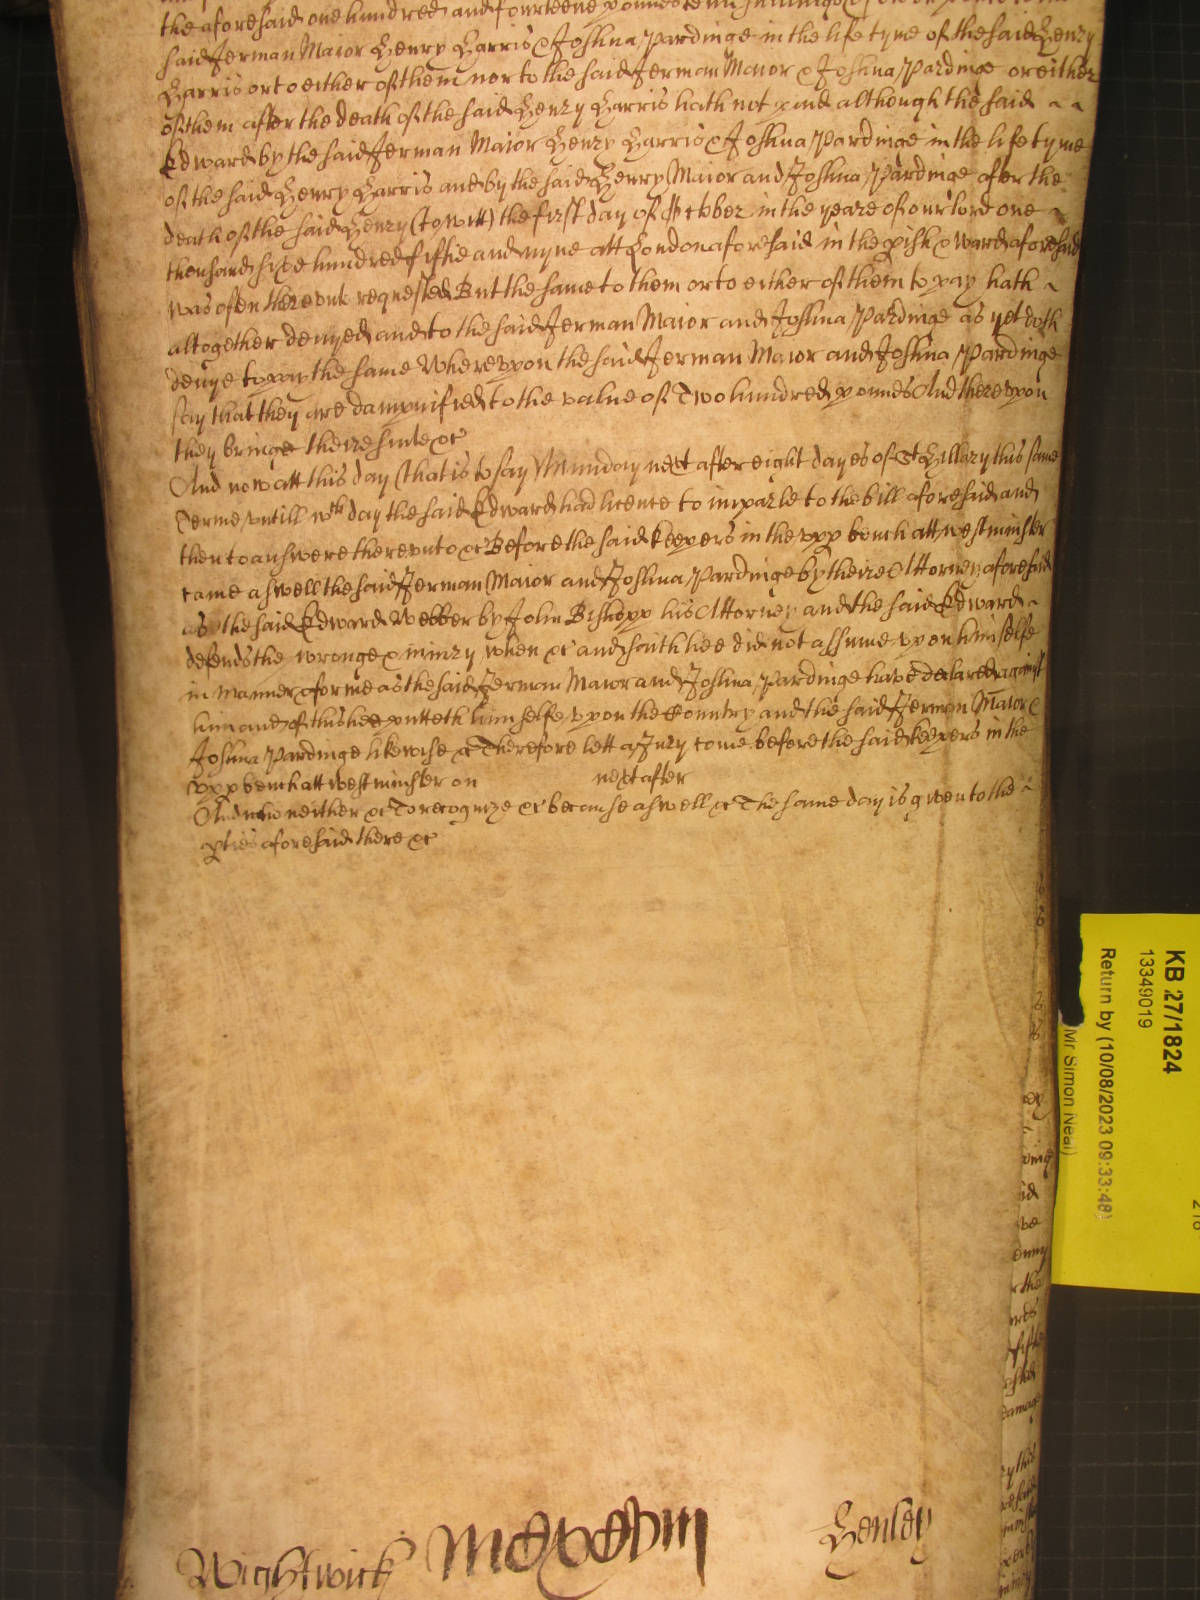 the aforesaid one hundred and fourteene poundes
said Jerman Maior Henry Harris & Joshua Pardinge in the life tyme of the said Henry
Harris or to either of them nor to the said Jerman Maior & Joshua Pardinge or either
of them after the death of the said Henry Harris hath not paid although the said
Edward by the said Jerman Maior Henry Harris & Joshua Pardinge in the life tyme
of the said Henry Harris and by the said Henry Maior and Joshua Pardinge after the
death of the said Henry (to witt) the first day of October in the yeare of our lord one
thousand sixe hundred fiftie and nyne att London aforesaid in the pish & ward aforesaid
was often therevnto requested But the same to them or to either of them to pay hath
altogether denyed and to the said Jerman Maior and Joshua Pardinge as yet doth
denye to pay the same Wherevpon the said Jerman Maior and Joshua Pardinge
say that they are dampnified to the value of Two hundred pounds And therevpon
they bringe theire suite &c
And now att this day (that is to say) Munday next after eight dayes of St Hillary this same
Terme vntill wch day the said Edward had licence to imparle to the bill aforesaid and
then to answere therevnto &c Before the said keepers in the vpp bench att westminster
came aswell the said Jerman Maior and Joshua Pardinge by theire Attorney aforesaid
as the said Edward Webber by John Bishopp his Attorney and the said Edward
defends the wronge & iniury when &c and saith hee did not assume vpon himselfe
in manner & forme as the said Jerman Maior and Joshua Pardinge have declared against
him and of this hee putteth himselfe vpon the Country and the said Jerman Maior &
Joshua Pardinge likewise &c Therefore lett a Jury come before the said keepers in the
vpp bench att westminster on next after
And who neither &c To recognize &c because aswell &c The same day is given to the
pties aforesaid there &c
Wightwick Henley
KB 27/1824
13349019
Return by (10/08/2023 09:33:48)
Mr Simon Neal)